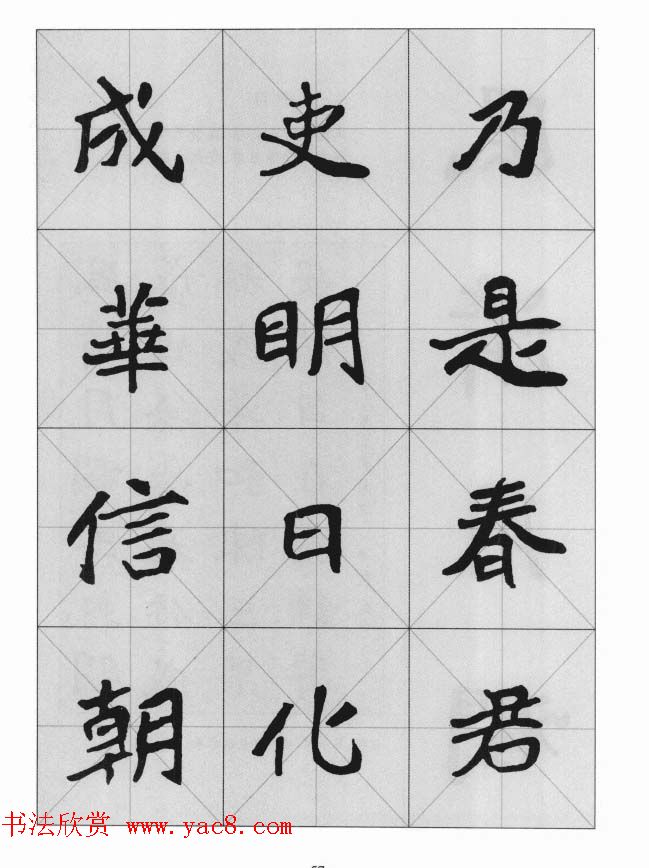 乃是春君
吏明日化
成華信朝
书法欣赏 www.yac8.com